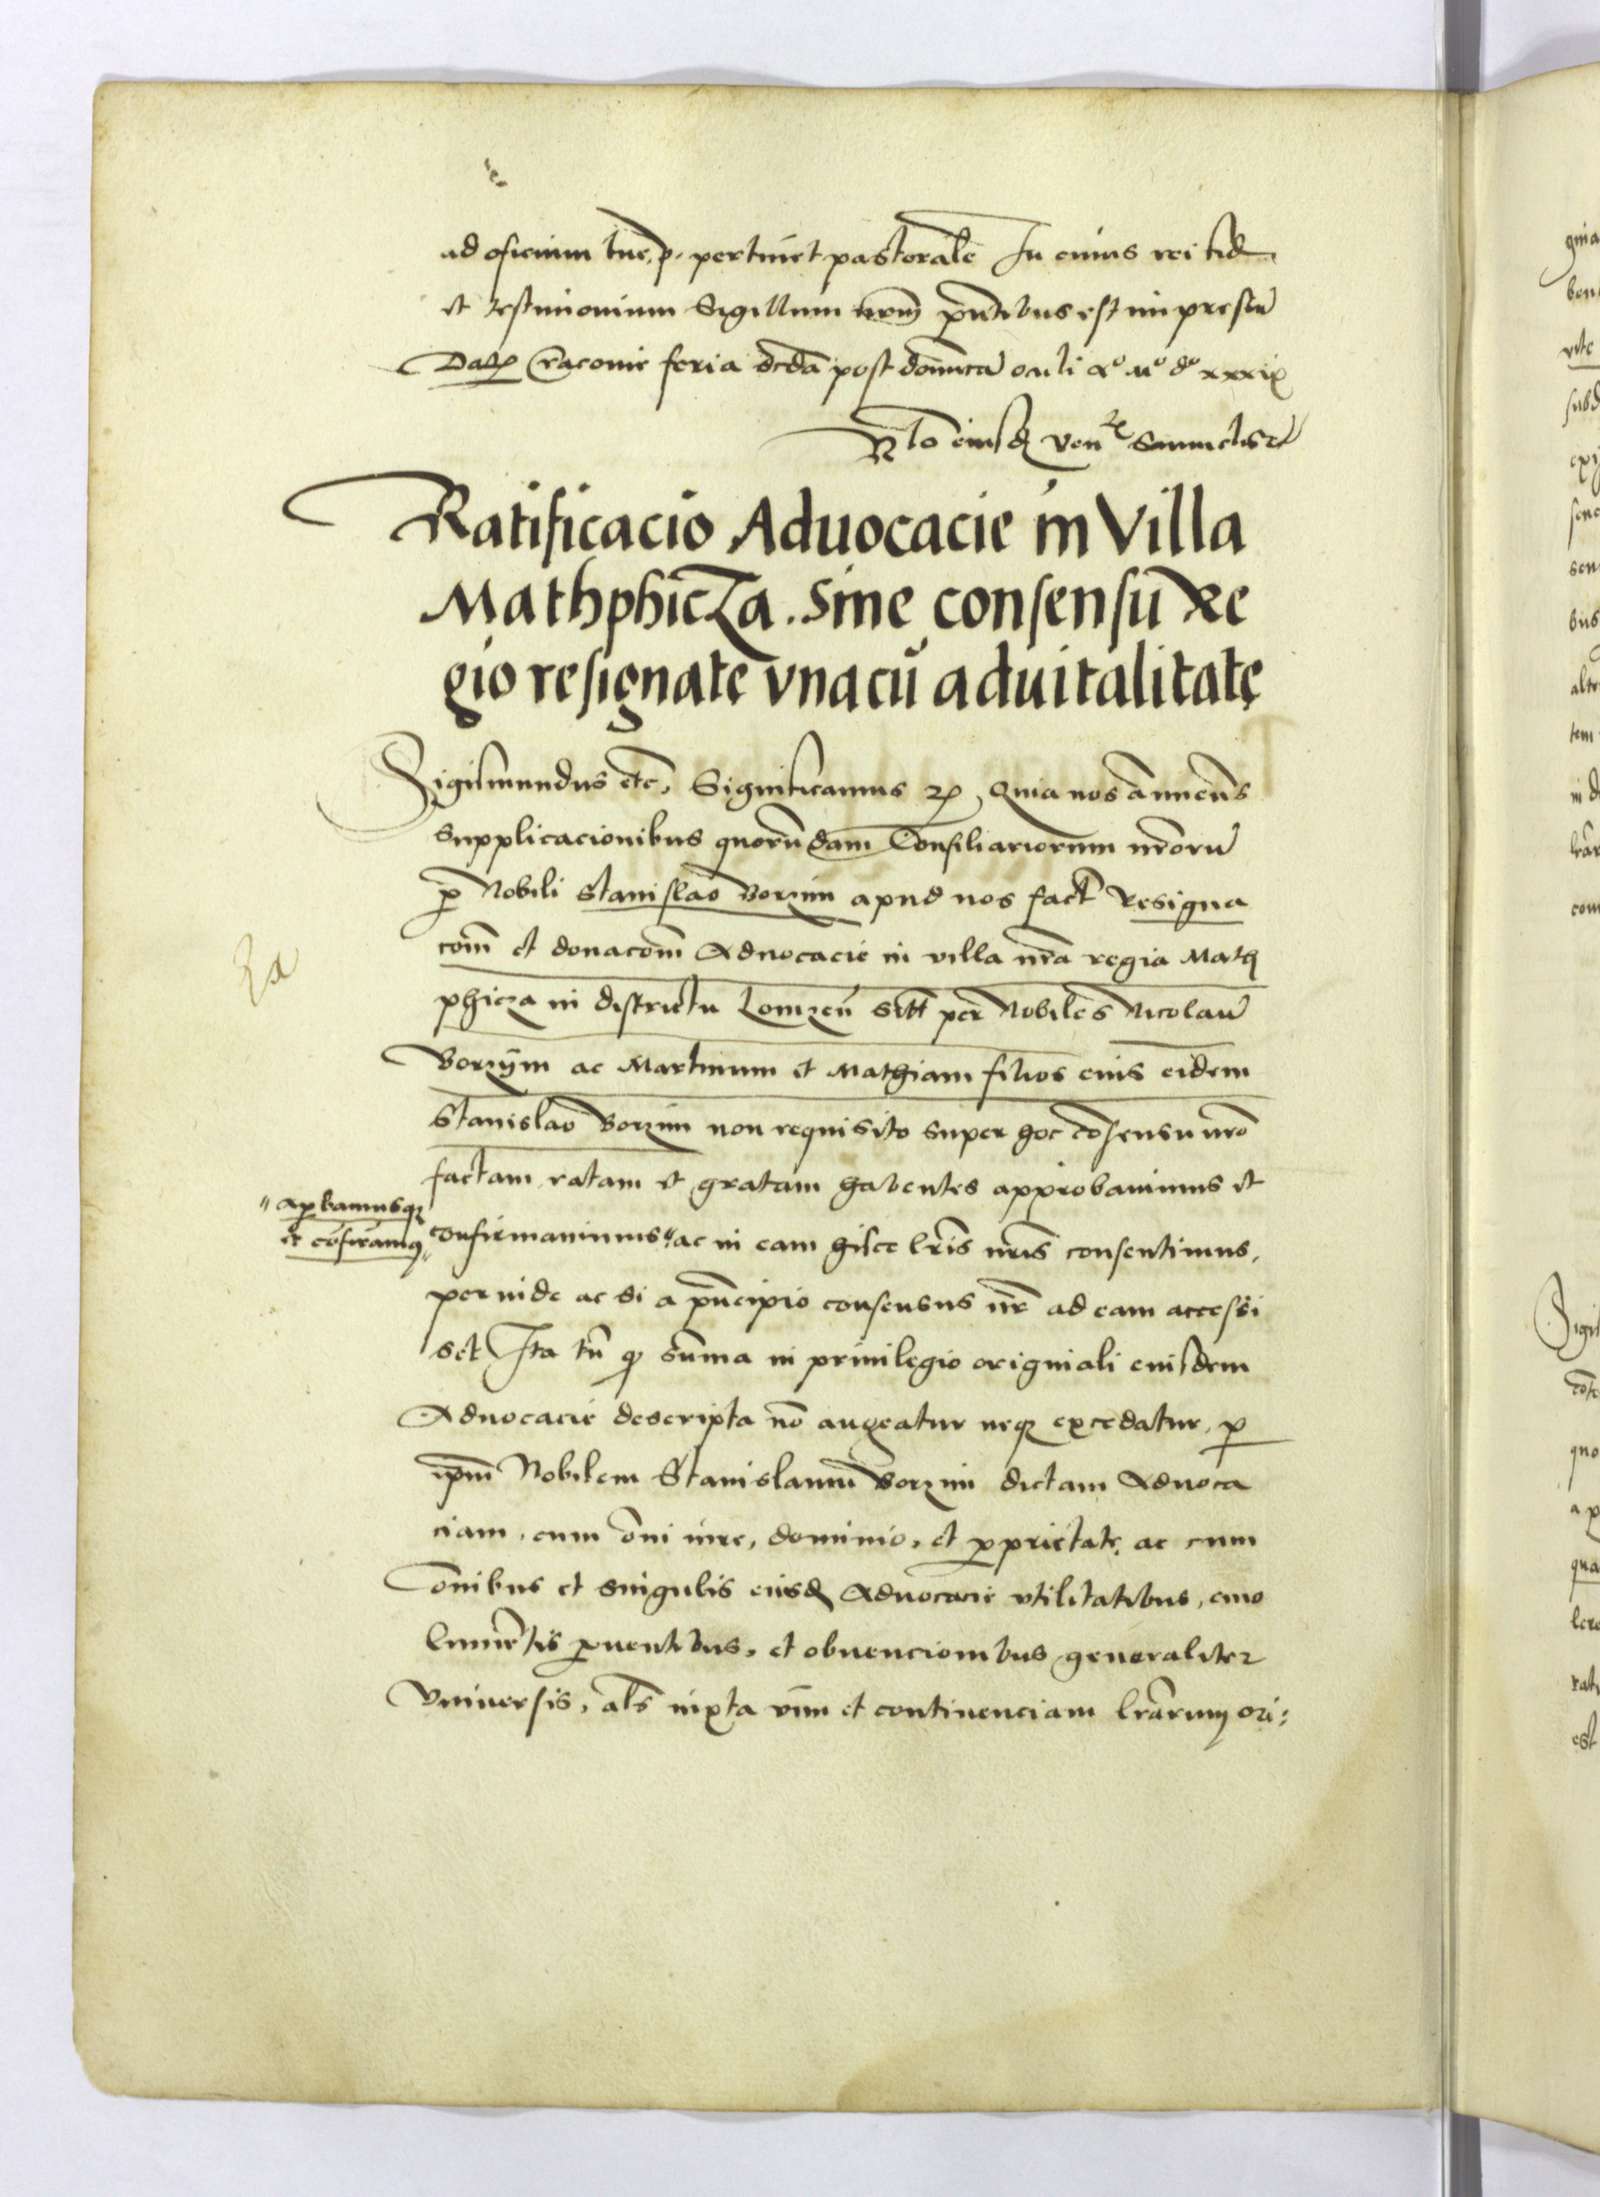 ad oficium tue p. pertinet pastorale In cuius rei fid
et testimonium Sigillum nrm pntibus est impressu
Dat Cracouie feria scda post domica oculi Ao Mo do xxxix
Rlo eiusd Ven Samuelis
Ratificacio Aduocacie in Villa
Mathphicza. Sine consensu Re
gio resignate vnacu aduitalitate
Sigismundus etc, Significamus Quia nos annuens
supplicacionibus quorundam Consiliariorum nroru
p Nobili Stanislao Borzim apud nos fact Resigna
com et donacom Aduocacie in villa nra regia Math
phicza in districtu Lomzen sitt per Nobiles Nicolau
Borzym ac Martinum et Mathiam filios eius eidem
Stanislao Borzim non requisito super hoc cosensu nro
factam ratam et gratam habentes approbauimus et
"apbamusq
et cofiramq"
confirmauimus" ac in eam hisce lris nris consentimus,
perinde ac si a pncipio consensus nr ad eam accessi
set Ita tn q summa in priuilegio originali eiusdem
Aduocacie descripta no augeatur neq excedatur, p
ipm Nobilem Stanislaum Borzim dictam Aduoca
ciam, cum oni iure, dominio, et pprietate, ac cum
onibus et singulis eiusd Aduocacie vtilitatibus, emo
lumetis puentibus, et obuencionibus generaliter
Vniuersis, als iuxta vim et continenciam lrarum ori: